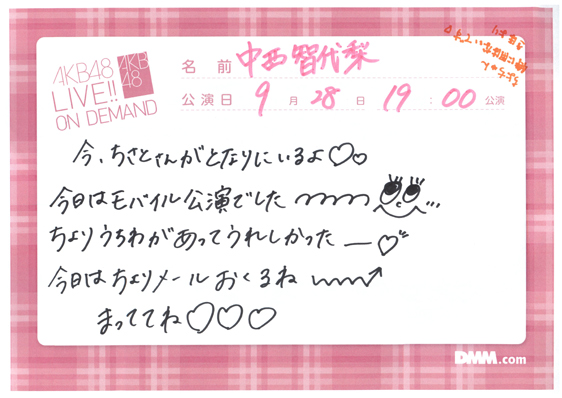 AKB48
LIVE!!
ON DEMAND
AKB
48
名前 中西智代梨
公演日 9月28日 19:00公演
今、ちさとさんがとなりにいるよ♡♡
今日はモバイル公演でした
ちよりうちわがあってうれしかったー♡
今日はちよりメールおくるね
まっててね♡♡♡
DMM.com